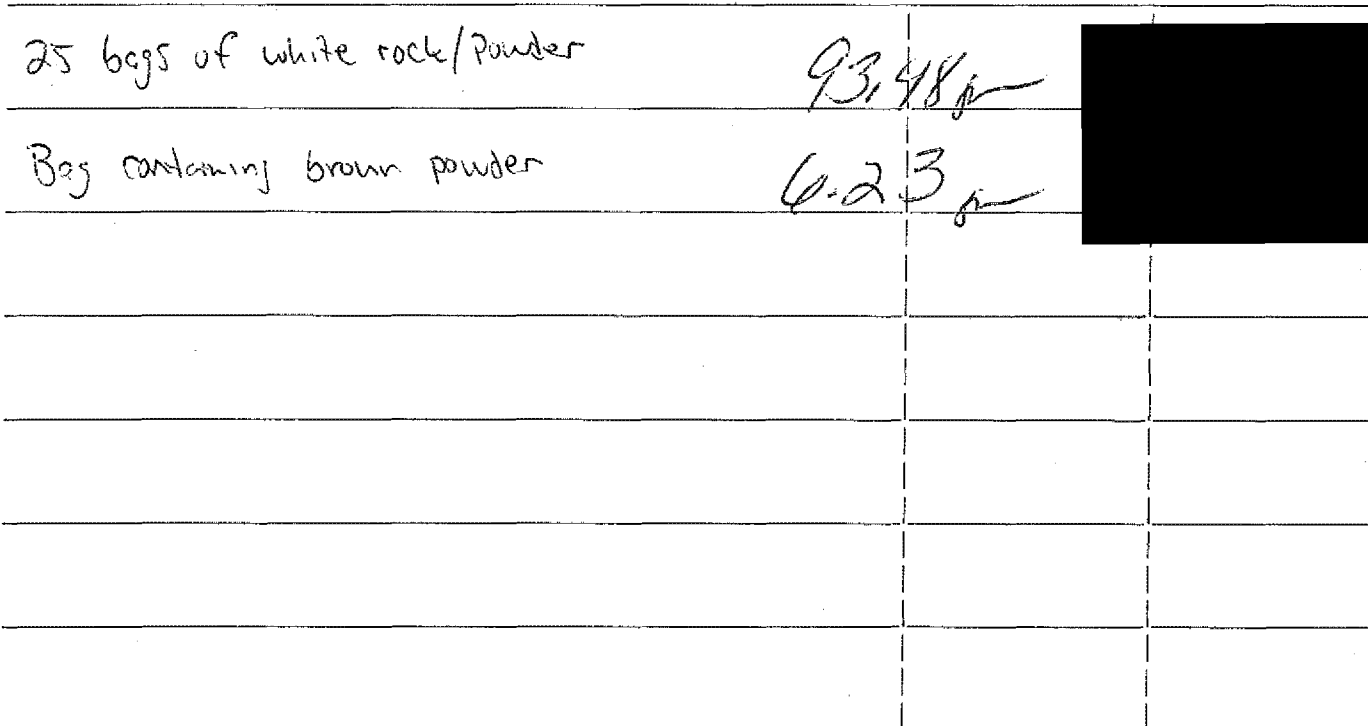 25 bags of white rock/Powder 93.48 gm
Bag containing brown powder 6.23 gm